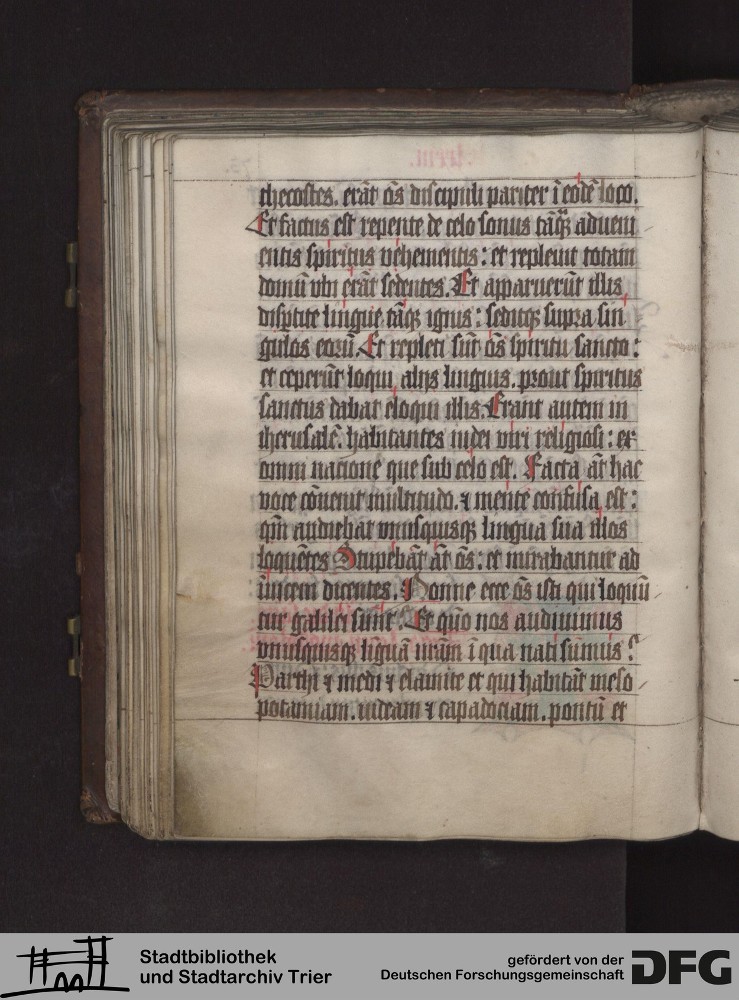 thecostes. erāt oēs discipuli pariter ī eodē loco.
Et factus est repente de celo sonus tāq̄ aduen
entis spiritus vehementis: et repleuit totam
domū vbi erāt sedentes. Et apparuerūt illis
disꝑtite lingue tāqꝫ ignis: seditqꝫ supra sin
gulos eorū. Et repleti sūt oēs spiritu sancto:
et ceperūt loqui alijs linguis. prout spiritus
sanctus dabat eloqui illis. Erant autem in
iherusalē. habitantes iudei viri religiosi: ex
omni nacione que sub celo est. Facta āt hac
voce cōuenit multitudo. ⁊ mente confusa est:
qm̄ audiebat vnusquisqꝫ lingua sua illos
loquētes Stupebāt āt oēs: et mirabantur ad
īuicem dicentes. Nonne ecce oēs isti qui loquū
tur galilei sunt. Et quō nos audiuimus
vnusquisqꝫ liguā nrām ī qua nati sumus?
Parthi ⁊ medi ⁊ elamite et qui habitāt meso
potamiam. iudeam ⁊ capadociam. pontū et
Stadtbibliothek
und Stadtarchiv Trier
gefördert von der
Deutschen Forschungsgemeinschaft
DFG